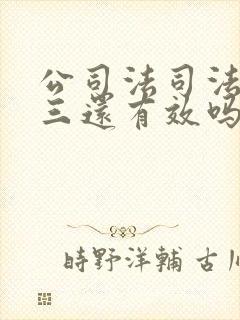 公司法司法
三還有效吗
時野洋輔 古川